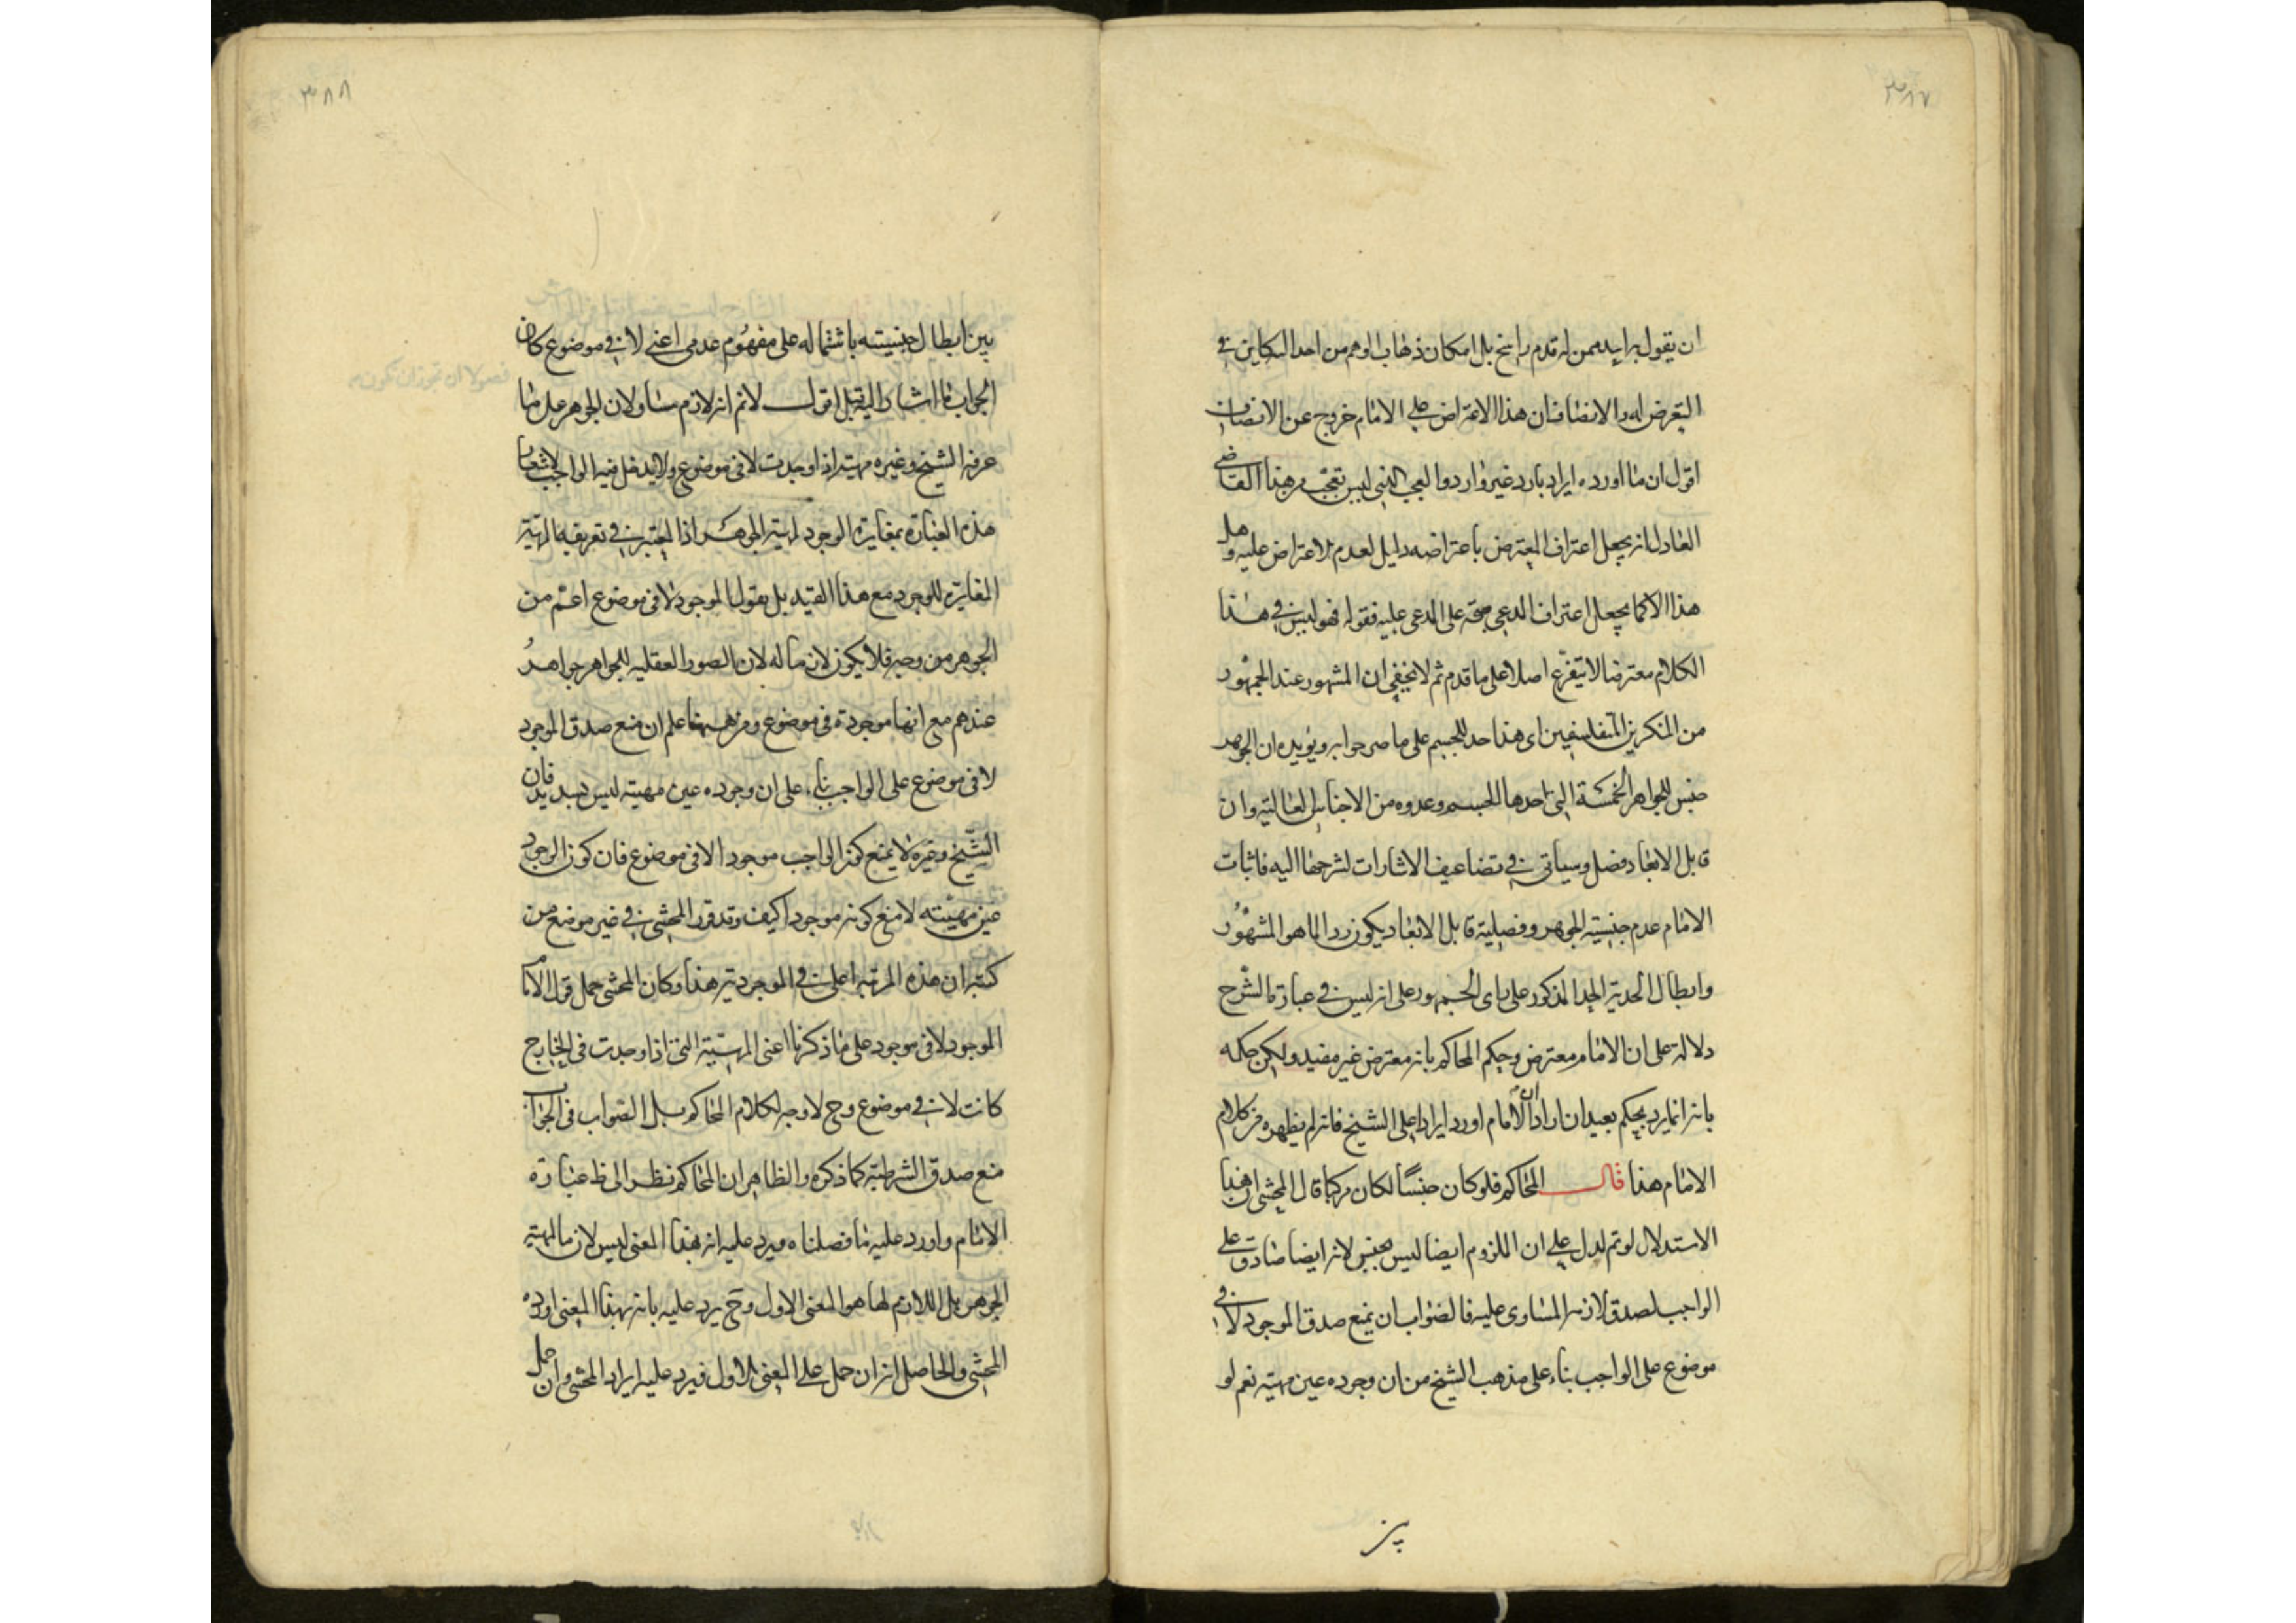 ٣٨٧
ان يقول برايه ممن له قدم راسخ بل امكان ذهاب الوهم من احد الكلامين في
التعرض له والانصاف ان هذا الاعتراض على الامام خروج عن الانصاف
اقول ان ما اورده ايراد بارد غير وارد والعجب الذى ليس بعجب من هذا القاضى
العادل انه يجعل اعتراف المعترض باعتراضه دليل لعدم الاعتراض عليه وهل
هذا الا كما يجعل اعتراف المدعى حجة على المدعى عليه فقوله فهو ليس في هذا
الكلام معترضا لا يتفرع اصلا على ما قدم ثم لا يخفى ان المشهور عند الجمهور
من المنكرين المتفلسفين اى هذا حد للجسم على ما صرحوا به ويؤيده ان الجوهر
جنس للجواهر الخمسة التى احدها للجسم وعدوه من الاجناس العالية وان
قابل الابعاد فصل وسياتى في تضاعيف الاشارات لشرحها اليه فاثبات
الامام عدم جنسية الجوهر وفصلية قابل الابعاد يكون ردا لما هو المشهور
وابطال الحدية الحد المذكور على راى الجمهور على انه ليس في عبارة الشرح
دلالة على ان الامام معترض وحكم المحاكم بانه معترض غير مفيد ولكن حكمه
بانه انما يرد بحكم بعيد ان اراد ان الامام اورد ايرادا على الشيخ فانه لم يظهر من كلام
الامام هذا قال المحاكم فلو كان جنسًا لكان مركبا قال المحشى ان هذا
الاستدلال لو تم لدل على ان الملزوم ايضا ليس بجنس لانه ايضا صادق على
الواجب لصدق لازمه المساوى عليه فالصواب ان يمنع صدق الموجود لا في
موضوع على الواجب بناء على مذهب الشيخ من ان وجوده عين مهيته نعم لو
بين
٣٨٨
بين ابطال جنسيته باشتماله على مفهوم عدمى اعنى لا في موضوع كان
الجواب ما اشار اليه قبل اقول لانم انه لازم مساو لان الجوهر على ما
عرفه الشيخ وغيره مهية اذا وجدت لا في موضوع ولا يدخل فيه الواجب لاشعار
هذه العبارة بمغايرة الوجود لمهية الجوهر اذا لم يعتبر في تعريفه المهية
المغايرة للوجود مع هذا القيد بل يقول الموجود لا في موضوع اعم من
الجوهر من وجه فلا يكون لازما له لان الصور العقلية للجواهر جواهر
عندهم مع انها موجودة في موضوع ومن ههنا علم ان منع صدق الموجود
لا في موضوع على الواجب بناء على ان وجوده عين مهيته ليس بسديد فان
الشيخ وغيره لا يمنع كون الواجب موجودا لا في موضوع فان كون الوجود
عين مهيته لا منع كونه موجودا كيف وقد قرر المحشى في غير موضع من
كتبه ان هذه المرتبة اعلى في الموجودية هذا وكان المحشى حمل قول الامام
الموجود لا في موجود على ما ذكرنا اعنى المهية التى اذا وجدت في الخارج
كانت لا في موضوع وح لا وجه لكلام المحاكم بل الصواب في الجواب
منع صدق الشرطية كما ذكره والظاهر ان المحاكم نظر الى ظ عبارة
الامام واورد عليه ما فصلناه ويرد عليه انه بهذا المعنى ليس لازما لمهية
الجوهر بل اللازم لها هو المعنى الاول وح يرد عليه بانه بهذا المعنى اورده
المحشى والحاصل انه ان حمل على المعنى الاول فيرد عليه ايراد المحشى وان حمل
فصولا ان تجوز ان تكون